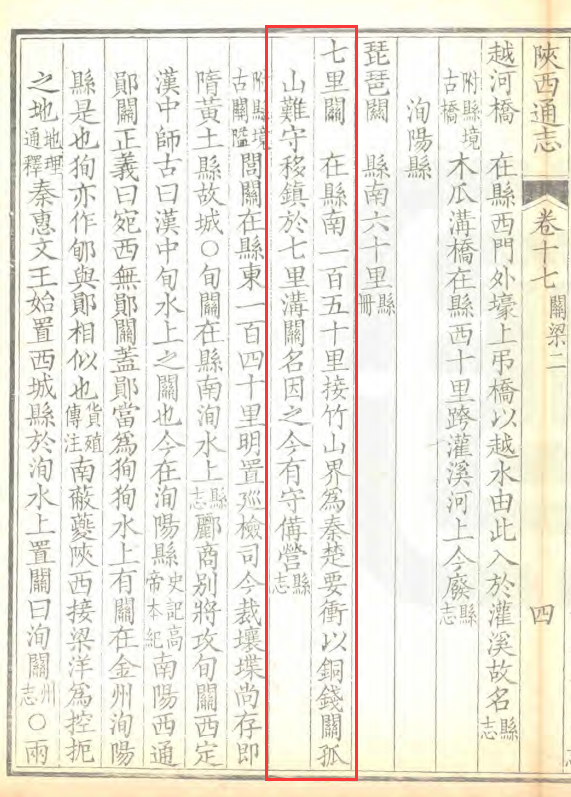 陝西通志 卷十七 關梁二 四
越河橋 在縣西門外壕上吊橋以越水由此入於灌溪故名縣志
附縣境古橋 木瓜溝橋在縣西十里跨灌溪河上今廢縣志
洵陽縣
琵琶關 縣南六十里縣冊
七里關 在縣南一百五十里接竹山界爲秦楚要衝以銅錢關孤
山難守移鎮於七里溝關名因之今有守備營縣志
附縣境古關隘 閭關在縣東一百四十里明置巡檢司今裁壤堞尚存即
隋黃土縣故城○旬關在縣南洵水上縣志酈商别將攻旬關西定
漢中師古曰漢中旬水上之關也今在洵陽縣史記高帝本紀南陽西通
鄖關正義曰宛西無鄖關蓋鄖當爲狥狥水上有關在金州洵陽
縣是也狥亦作郇與鄖相似也貨殖傳注南蔽夔陝西接梁洋爲控扼
之地地理通釋秦惠文王始置西城縣於洵水上置關曰洵關州志○兩